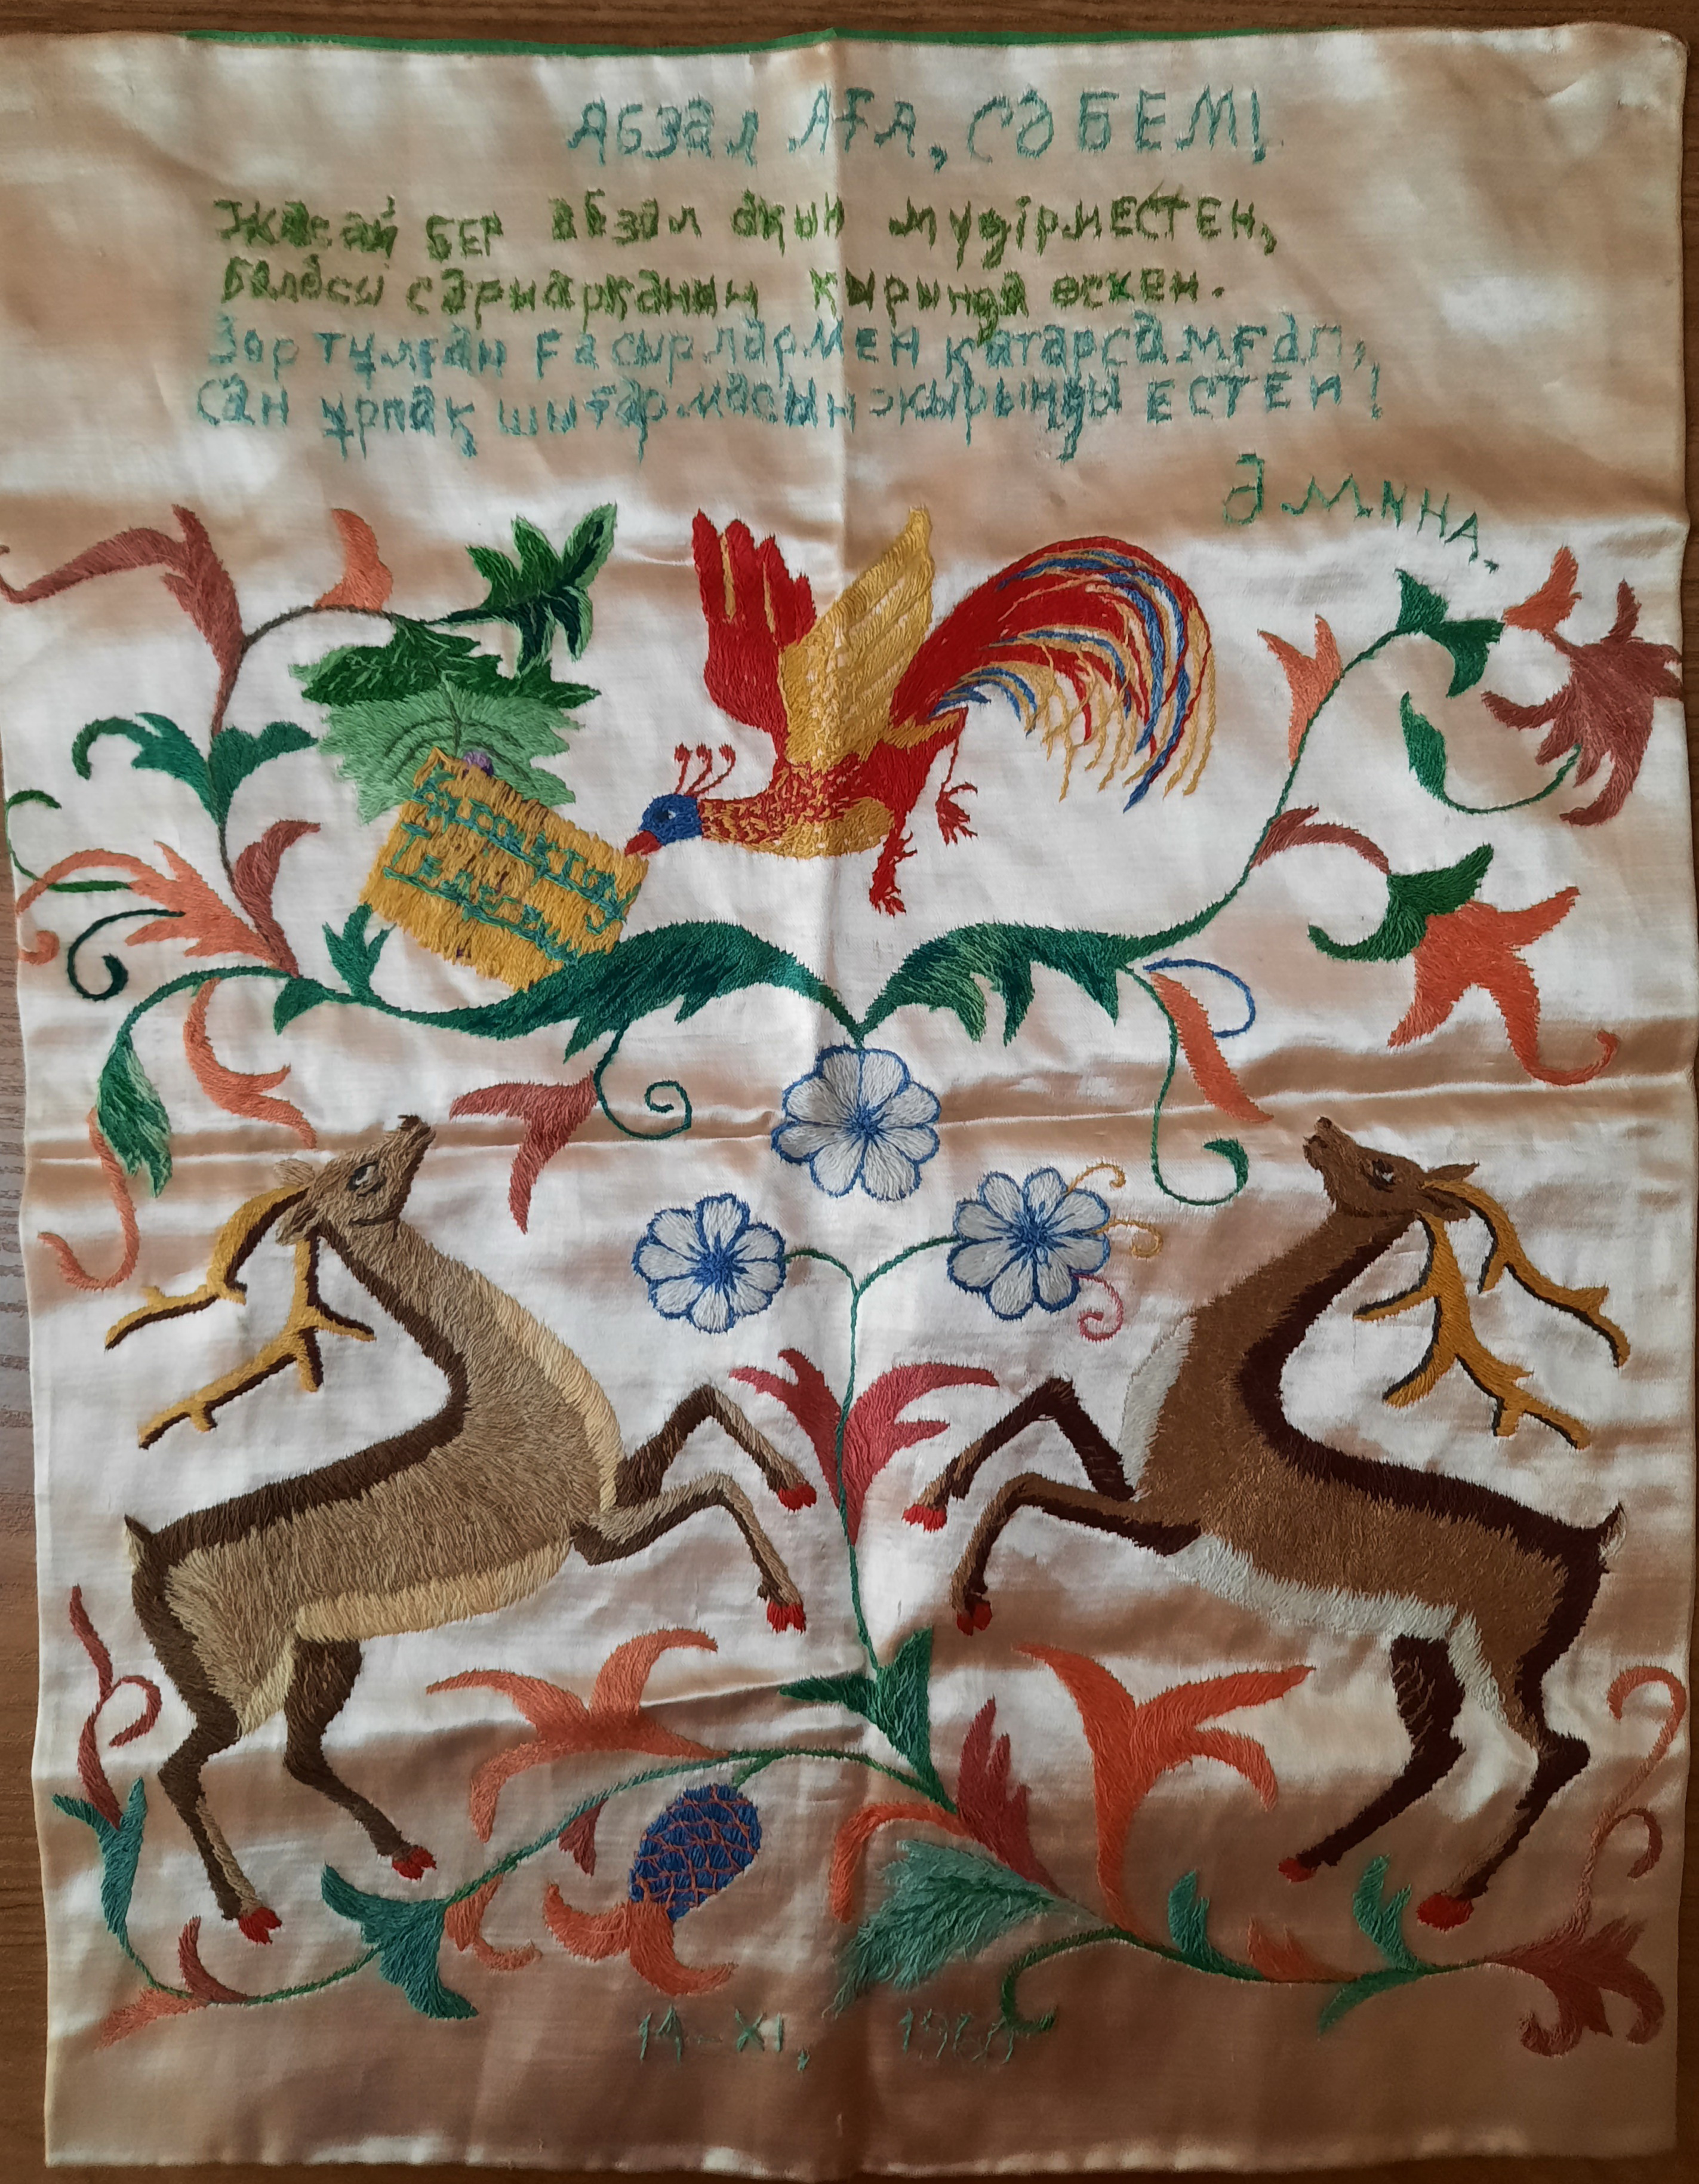 АБЗАЛ АҒА, СӘБЕМ!
Жасай БЕР абзал ақын мүдірмЕСТЕН,
Баласы сариарқаның қырында өскен.
Зор тұлғаң ғасырлармЕН қатарсамғап,
Сан ұрпақ шығармасың жырыңды ЕСТЕН!
ӘМИНА.
14-XI, 1960